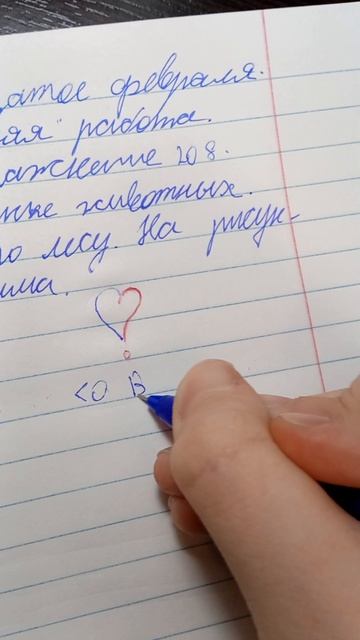 атое февраля.
няя" работа.
ажнение 208.
ние животных.
по лесу. На рисун-
има.
<О В